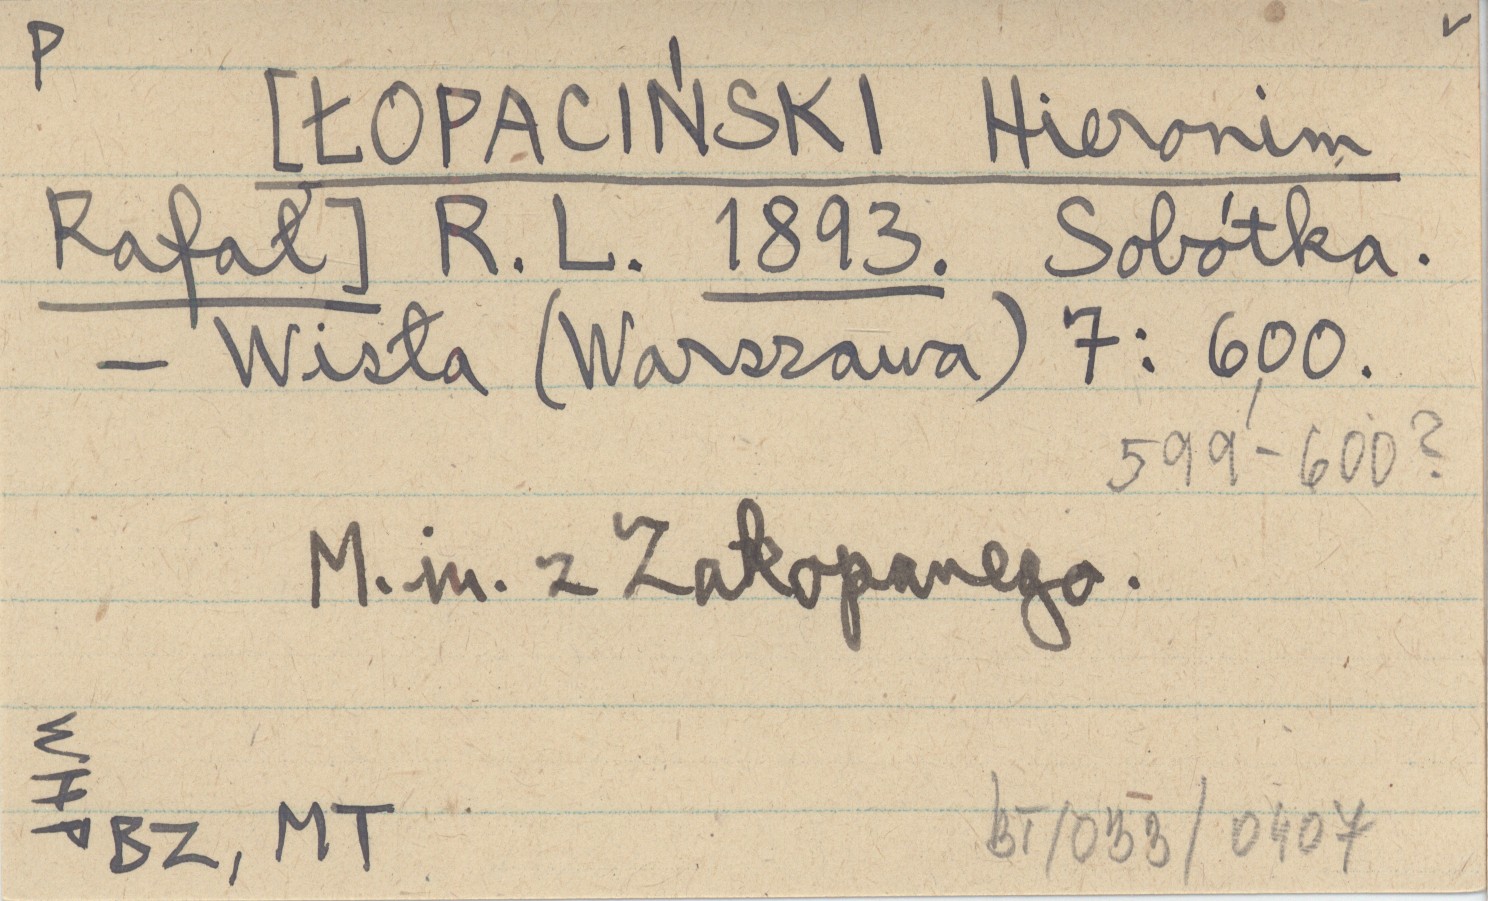 P
[ŁOPACIŃSKI Hieronim
Rafał] R. L. 1893. Sobótka.
— Wisła (Warszawa) 7: 600.
599-600?
M. in. z Zakopanego.
WHP
BZ, MT
BT/033/0407